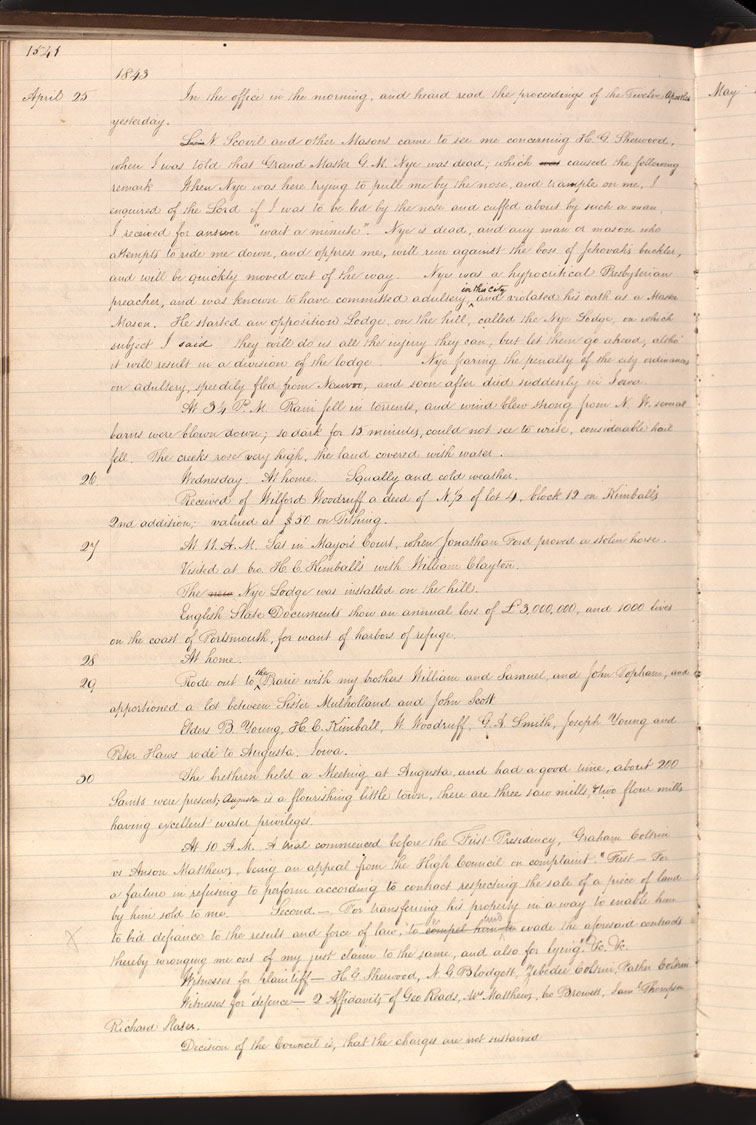 1541
1843
April 25 In the office in the morning, and heard read the proceedings of the Twelve Apostles
yesterday.
N. Scovil and other Masons came to see me concerning H. G. Sherwood,
when I was told that Grand Master G. M. Nye was dead, which was caused the following
remark When Nye was here trying to pull me by the nose, and trample on me, I
enquired of the Lord if I was to be led by the nose and cuffed about by such a man,
I received for answer "wait a minute". Nye is dead, and any man or mason who
attempts to ride me down, and oppress me, will run against the boss of Jehovah's buckler,
and will be quickly moved out of the way. Nye was a hypocritical Presbyterian
preacher, and was known to have committed adultery in this city, and violated his oath as a Master
Mason. He started an opposition Lodge, on the hill, called the Nye Lodge, on which
subject I said they will do us all the injury they can, but let them go ahead, altho'
it will result in a division of the lodge. Nye faring the penalty of the city ordinances
on adultery, speedily fled from Nauvoo, and soon after died suddenly in Iowa.
At 3¼ P. M. Rain fell in torrents, and wind blew strong from N. W. several
barns were blown down; so dark for 15 minutes, could not see to write, considerable hail
fell. The creeks rose very high, the land covered with water.
26 Wednesday At home. Squally and cold weather.
Received of Wilford Woodruff a deed of N/2 of lot 4, block 12 on Kimball's
2nd addition; valued at $50 on Tithing.
27 At 11. A. M. Sat in Mayor's Court, when Jonathan Ford proved a stolen horse.
Visited at bro. H. C. Kimball's with William Clayton.
The new Nye Lodge was installed on the hill.
English State Documents show an annual loss of £3,000,000, and 1000 lives
on the coast of Portsmouth, for want of harbors of refuge.
28 At home.
29 Rode out to the Prarie with my brothers William and Samuel, and John Topham, and
apportioned a lot between Sister Mulholland and John Scott
Elders B. Young, H. C. Kimball, W. Woodruff, G. A. Smith, Joseph Young and
Peter Haws rode to Augusta, Iowa.
30 The brethren held a Meeting at Augusta, and had a good time, about 200
Saints were present; Augusta is a flourishing little town, there are three saw mills, & two flour mills
having excellent water privileges.
At 10 A. M. A trial commenced before the First Presidency, Graham Coltrin
vs Anson Matthews, being an appeal from the High Council on complaint. "First — For
a failure in refusing to perform according to contract respecting the sale of a piece of land
by him sold to me. Second —. For transferring his property in a way to enable him
to bid defiance to the result and force of law, to compel him to evade the aforesaid contract
thereby wronging me out of my just claim to the same, and also for lying" &c. &c.
Witnesses for plaintiff — H. G. Sherwood, N. G. Blodgett, Zebedee Coltrin, Father Coltrin
Witnesses for defence — 2 Affidavits of Geo Reads, Mrs Matthews, bro Browett, Saml Thompson
Richard Slater.
Decision of the Council is, that the charges are not sustained
May